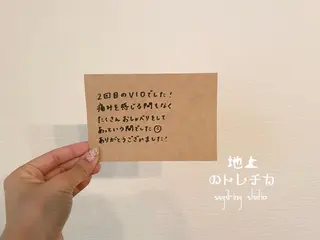 2回目のVIOでした！
痛みを感じる間もなく
たくさんおしゃべりをして
あっという間でした☺
ありがとうございました！
地上
のトレチカ
sugaring studio